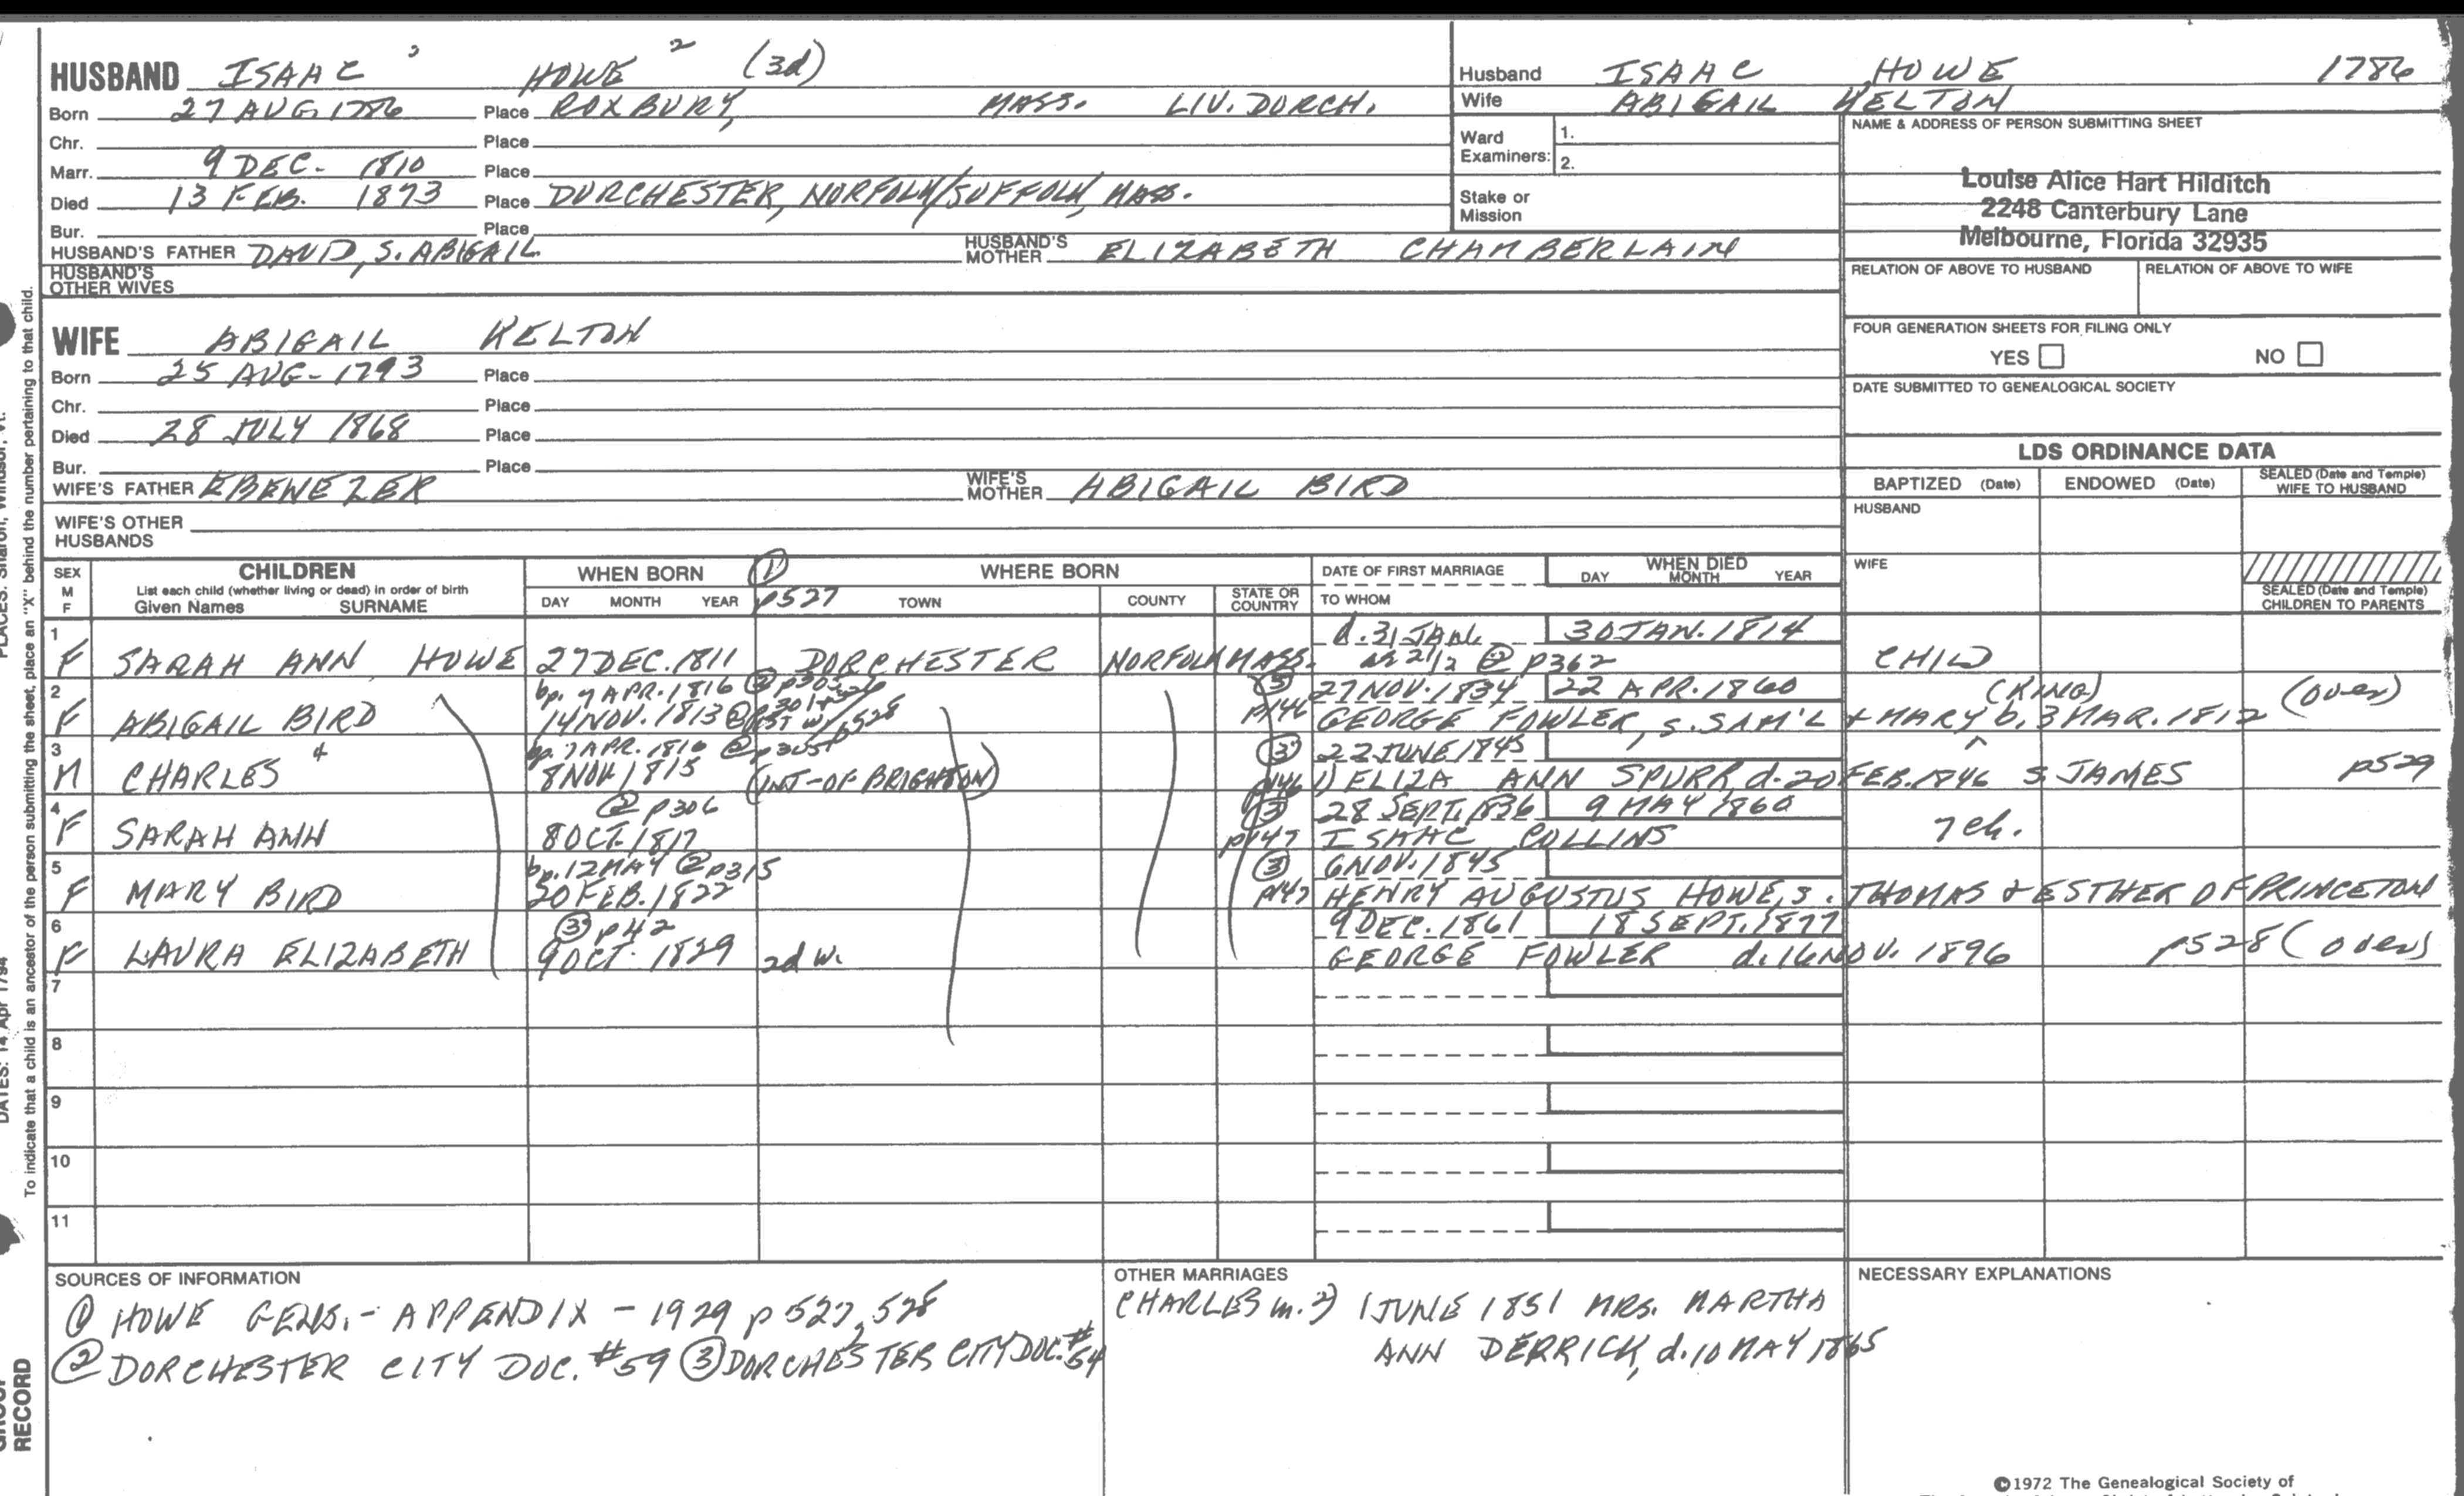 HUSBAND ISAAC HOWE (3d)
Born 27 AUG. 1786 Place ROXBURY, MASS. LIV. DORCH.
Chr. Place
Marr. 9 DEC. 1810 Place
Died 13 FEB. 1873 Place DORCHESTER, NORFOLK/SUFFOLK, MASS.
Bur. Place
HUSBAND'S FATHER DAVID, S. ABIGAIL HUSBAND'S MOTHER ELIZABETH CHAMBERLAIN
HUSBAND'S OTHER WIVES
Husband ISAAC HOWE 1786
Wife ABIGAIL KELTON
Ward Examiners: 1.
2.
Stake or Mission
NAME & ADDRESS OF PERSON SUBMITTING SHEET
Louise Alice Hart Hilditch
2248 Canterbury Lane
Melbourne, Florida 32935
RELATION OF ABOVE TO HUSBAND RELATION OF ABOVE TO WIFE
FOUR GENERATION SHEETS FOR FILING ONLY
YES NO
DATE SUBMITTED TO GENEALOGICAL SOCIETY
WIFE ABIGAIL KELTON
Born 25 AUG- 1793 Place
Chr. Place
Died 28 JULY 1868 Place
Bur. Place
WIFE'S FATHER EBENEZER WIFE'S MOTHER ABIGAIL BIRD
WIFE'S OTHER HUSBANDS
LDS ORDINANCE DATA
BAPTIZED (Date) ENDOWED (Date) SEALED (Date and Temple) WIFE TO HUSBAND
HUSBAND
WIFE
SEALED (Date and Temple) CHILDREN TO PARENTS
SEX M F
CHILDREN
List each child (whether living or dead) in order of birth
Given Names SURNAME
WHEN BORN
DAY MONTH YEAR
① p527
WHERE BORN
TOWN COUNTY STATE OR COUNTRY
DATE OF FIRST MARRIAGE
TO WHOM
WHEN DIED
DAY MONTH YEAR
1 d. 31 JAN. 30 JAN. 1814
F SARAH ANN HOWE 27 DEC. 1811 DORCHESTER NORFOLK MASS. 2 1/2 @ p362 CHILD
2 bp. 7 APR. 1816 ② p305 ③ 27 NOV. 1834 22 APR. 1860 (KING) (over)
F ABIGAIL BIRD 14 NOV. 1813 1ST W. p528 p146 GEORGE FOWLER, S. SAM'L + MARY b. 3 MAR. 1812
3 bp. 7 APR. 1816 ② p305 ③ 22 JUNE 1845
M CHARLES 8 NOV. 1815 (INT-OF BRIGHTON) p146 1) ELIZA ANN SPURR, d. 20 FEB. 1846 S. JAMES p529
4 ② p306 ③ 28 SEPT. 1836 9 MAY 1860
F SARAH ANN 8 OCT. 1817 p147 ISAAC COLLINS 7 ch.
5 bp. 12 MAY ② p315 ③ 6 NOV. 1845
F MARY BIRD 20 FEB. 1822 p147 HENRY AUGUSTUS HOWE, S. THOMAS & ESTHER OF PRINCETON
6 ③ p42 9 DEC. 1861 18 SEPT. 1877
F LAURA ELIZABETH 9 OCT. 1829 2d w. GEORGE FOWLER d. 16 NOV. 1896 p528 (over)
7
8
9
10
11
SOURCES OF INFORMATION
① HOWE GENS. - APPENDIX - 1929 p 527, 528
② DORCHESTER CITY DOC. #59 ③ DORCHESTER CITY DOC. #54
OTHER MARRIAGES
CHARLES m. 2) 1 JUNE 1851 MRS. MARTHA
ANN DERRICK, d. 10 MAY 1865
NECESSARY EXPLANATIONS
©1972 The Genealogical Society of
To indicate that a child is an ancestor of the person submitting the sheet, place an "X" behind the number pertaining to that child.
PLACES: Sharon, Windsor, Vt.
DATES: 14 Apr 1794
GROUP RECORD